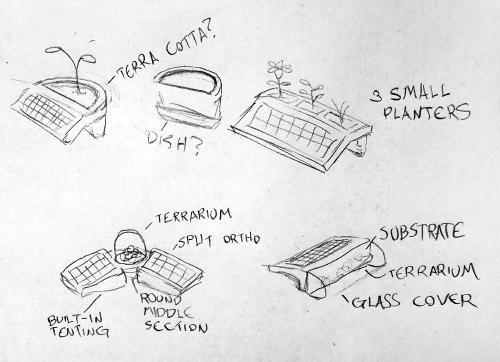 TERRA COTTA?
DISH?
3 SMALL
PLANTERS
TERRARIUM
SPLIT ORTHO
BUILT-IN
TENTING
ROUND
MIDDLE
SECTION
SUBSTRATE
TERRARIUM
GLASS COVER